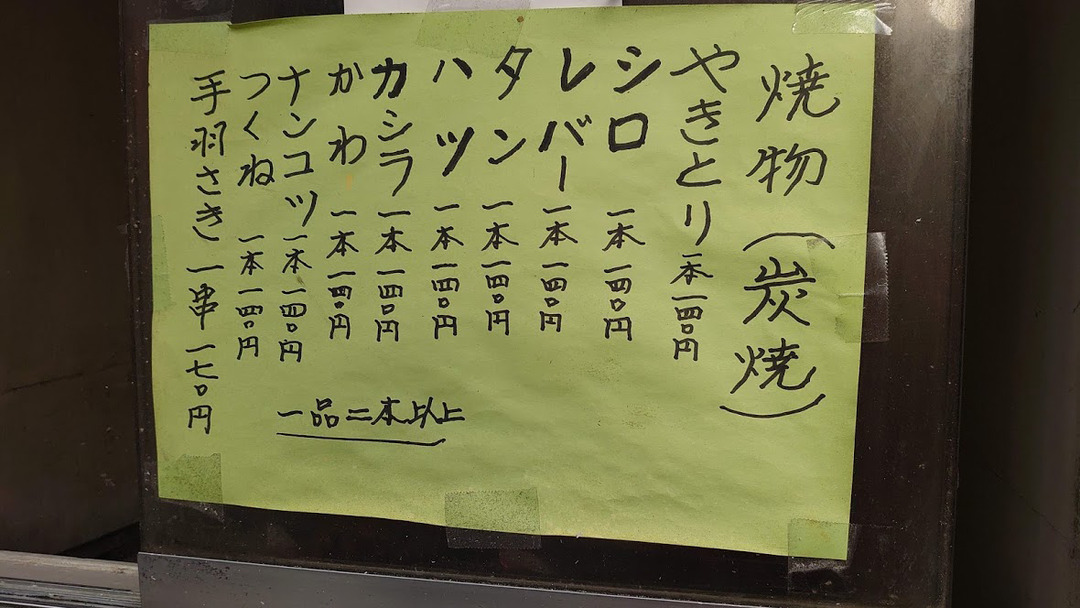 焼物(炭焼)
やきとり一本一四〇円
シロ一本一四〇円
レバー一本一四〇円
タン一本一四〇円
ハツ一本一四〇円
カシラ一本一四〇円
かわ一本一四〇円
ナンコツ一本一四〇円
つくね一本一四〇円
手羽さき一串一七〇円
一品二本以上